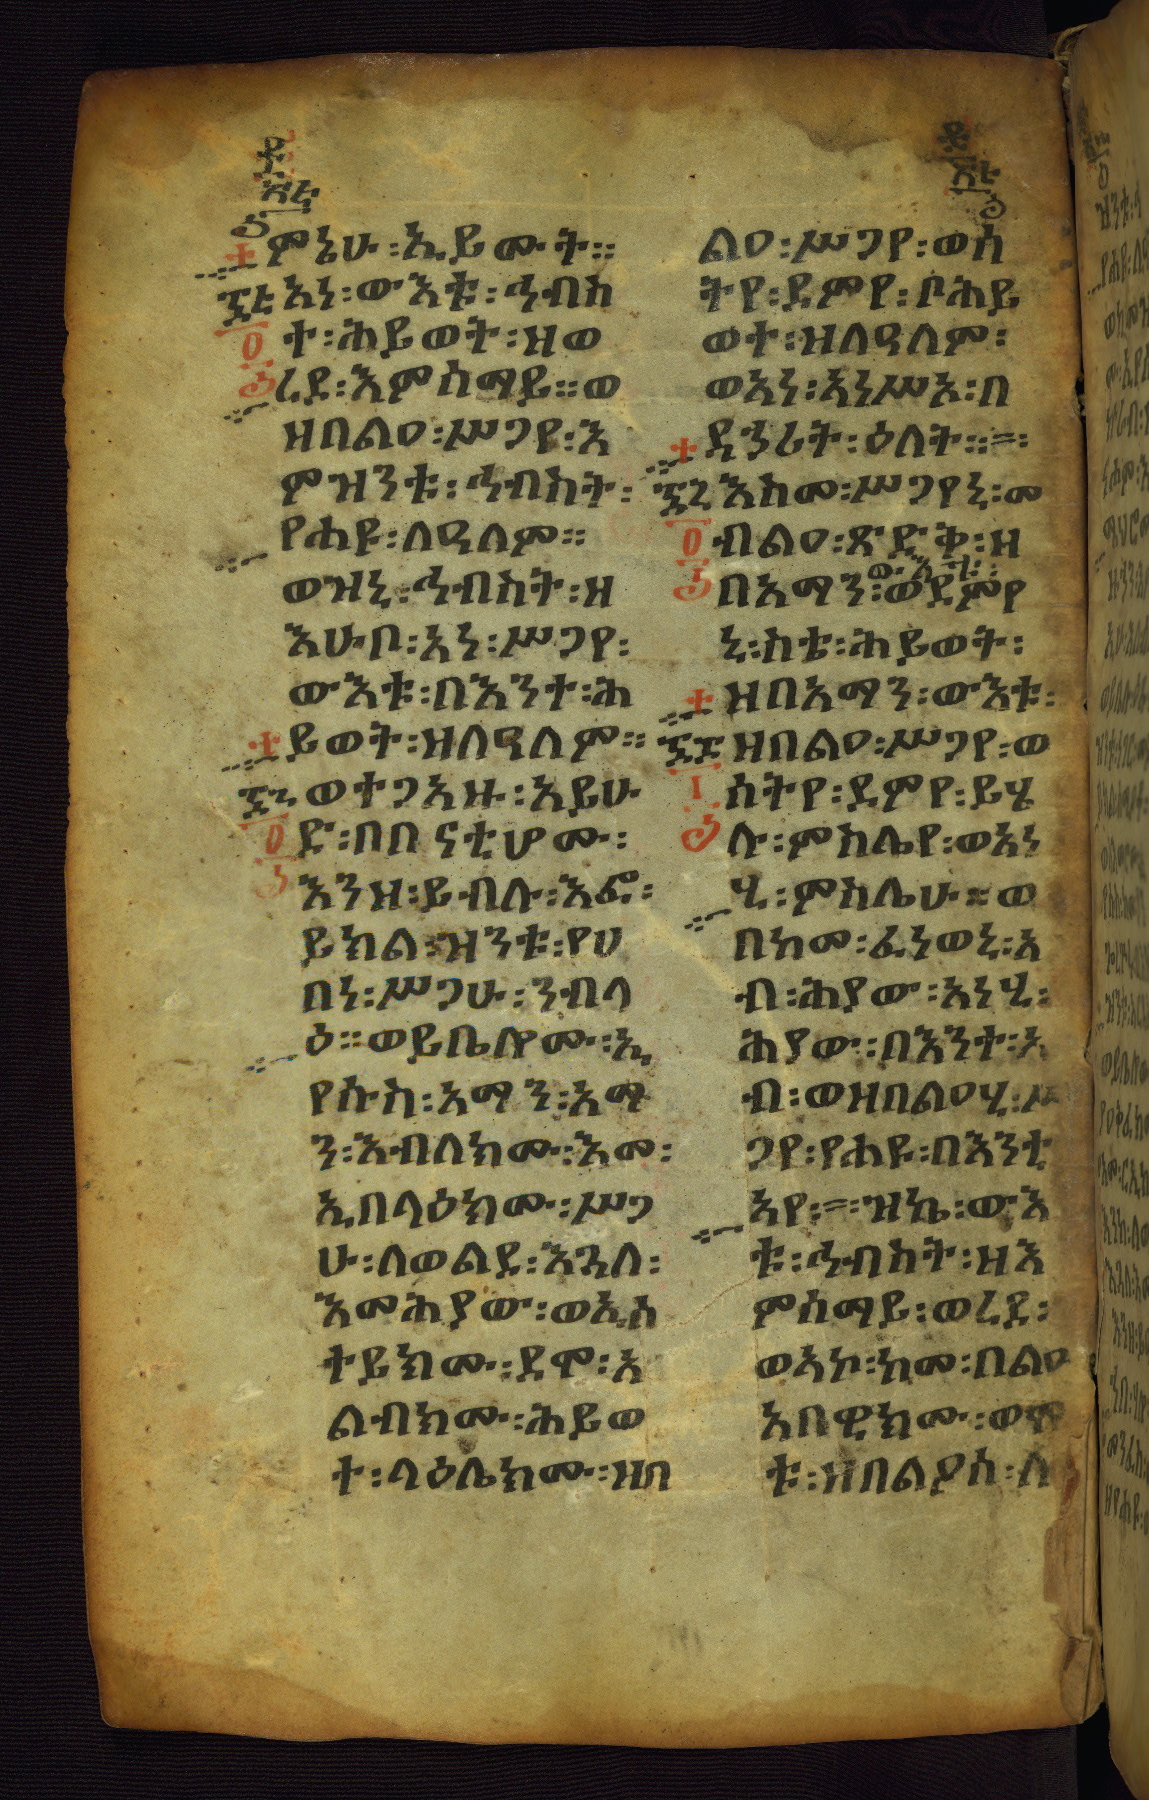 ምኔሁ፡ኢይሙት።
አነ፡ውእቱ፡ኅብስ
ተ፡ሕይወት፡ዘወ
ረደ፡እምሰማይ።ወ
ዘበልዐ፡ሥጋየ፡እ
ምዝንቱ፡ኅብስት፡
የሐዩ፡ለዓለም።
ወዝኒ፡ኅብስት፡ዘ
እሁቦ፡አነ፡ሥጋየ፡
ውእቱ፡በእንተ፡ሕ
ይወት፡ዘለዓለም።
ወተጋአዙ፡አይሁ
ድ፡በበ ናቲሆሙ፡
እንዘ፡ይብሉ፡እፎ፡
ይክል፡ዝንቱ፡የሀ
በነ፡ሥጋሁ፡ንብላ
ዕ።ወይቤሎሙ፡ኢ
የሱስ፡አማን፡አማ
ን፡እብለክሙ፡እመ፡
ኢበላዕክሙ፡ሥጋ
ሁ፡ለወልደ፡እጓለ፡
እመሕያው፡ወኢሰ
ተይክሙ፡ደሞ፡አ
ልብክሙ፡ሕይወ
ተ፡ላዕሌክሙ፡ዘበ
ልዐ፡ሥጋየ፡ወሰ
ትየ፡ደምየ፡ቦሕይ
ወተ፡ዘለዓለም፡
ወአነ፡አነሥኦ፡በ
ደኃሪት፡ዕለት።
እስመ፡ሥጋየኒ፡መ
ብልዐ፡ጽድቅ፡ዘ
በአማን፡ወደምየ
ኒ፡ስቴ፡ሕይወት፡
ዘበአማን፡ውእቱ፡
ዘበልዐ፡ሥጋየ፡ወ
ሰትየ፡ደምየ፡ይሄ
ሉ፡ምስሌየ፡ወአነ
ሂ፡ምስሌሁ።ወ
በከመ፡ፈነወኒ፡አ
ብ፡ሕያው፡አነሂ፡
ሕያው፡በእንተ፡አ
ብ፡ወዘበልዐሂ፡ሥ
ጋየ፡የሐዩ፡በእንቲ
አየ፡ዝኬ፡ውእ
ቱ፡ኅብስት፡ዘእ
ምሰማይ፡ወረደ፡
ወአኮ፡ከመ፡በልዑ
አበዊክሙ፡ወሞ
ቱ፡ዘበልዖሰ፡ለ